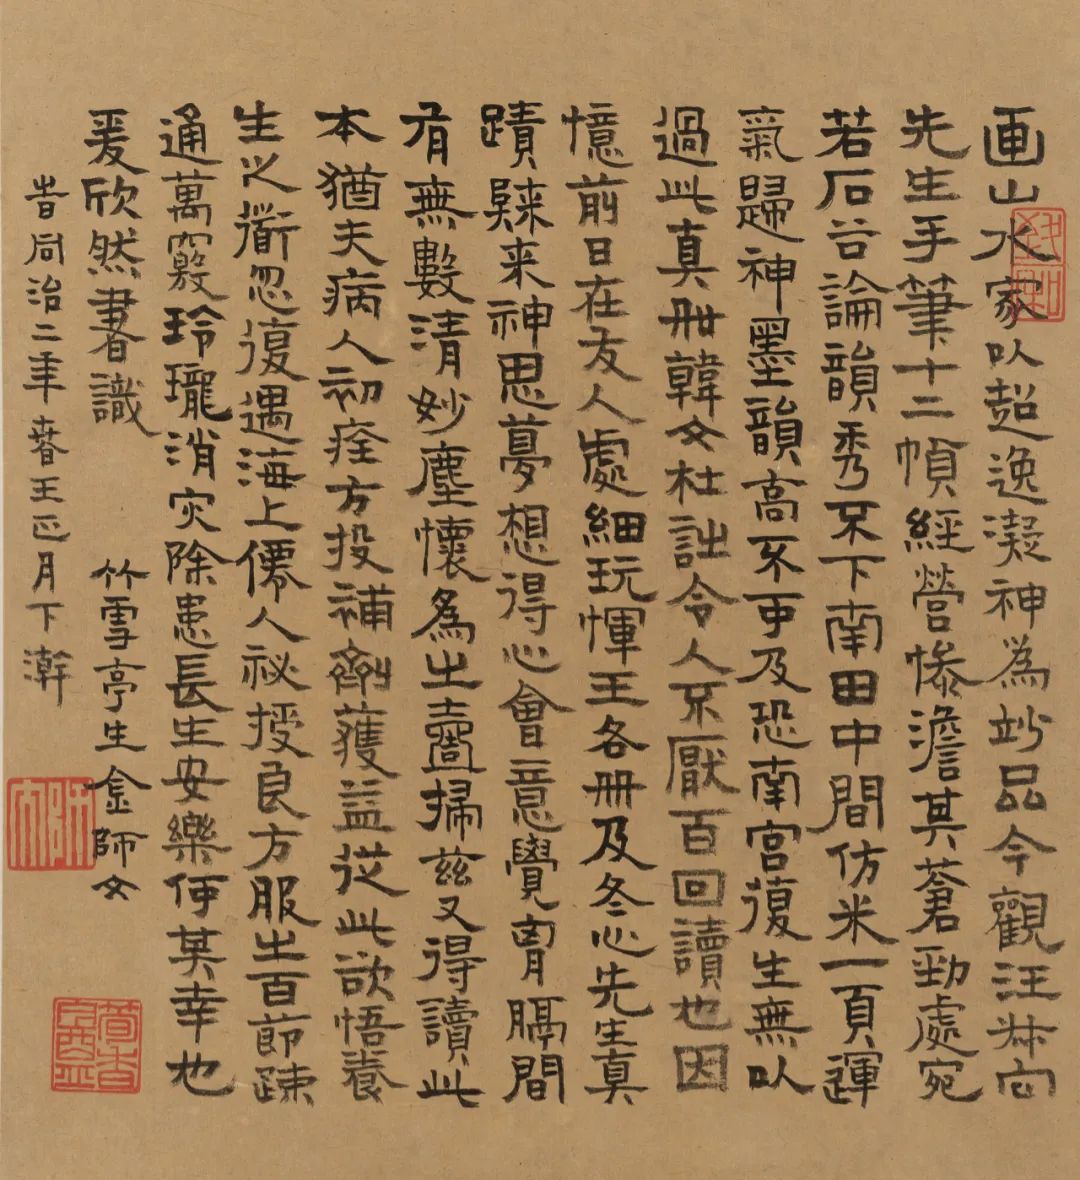 画山水家以超逸凝神為妙品今觀汪叔向
先生手筆十二幀經營慘澹其蒼勁處宛
若石谷論韻秀不下南田中間仿米一頁運
氣歸神墨韻高不可及恐南宮復生無以
過此真冊韓文杜詩令人不厭百回讀也因
憶前日在友人處細玩惲王各冊及冬心先生真
蹟歸來神思夢想得心會意覺胸膈間
有無數清妙塵懷為之盡掃茲又得讀此
本猶夫病人初痊方投補劑獲益從此欲悟養
生之術忽復遇海上僊人祕授良方服之百節疎
通萬竅玲瓏消灾除患長生安樂何其幸也
爰欣然書識
竹雪亭生金師文
旹同治二年春王正月下澣